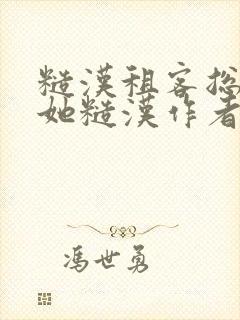 糙漢租客总
她糙漢作者
馮世勇